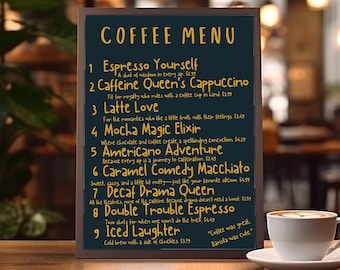 COFFEE MENU
1 Espresso Yourself
A shot of wisdom in every sip. $2.99
2 Caffeine Queen's Cappuccino
Fit for royalty who rules with a coffee cup in hand. $3.99
3 Latte Love
For the romantics who like a little froth with their feelings. $3.49
4 Mocha Magic Elixir
Where chocolate and coffee create a spellbinding concoction.
5 Americano Adventure
Because every sip is a journey to caffeination. $2.49
6 Caramel Comedy Macchiato
Sweet, sassy, and a little bit nutty—just like your favorite sitcom. $4.99
7 Decaf Drama Queen
All the theatrics, none of the caffeine. Because drama doesn't need a boost.
8 Double Trouble Espresso
Two shots for when one won't do the trick. $4.49
9 Iced Laughter
Cold brew with a side of chuckles. $3.79
"Coffee was great,
Barista was cute."